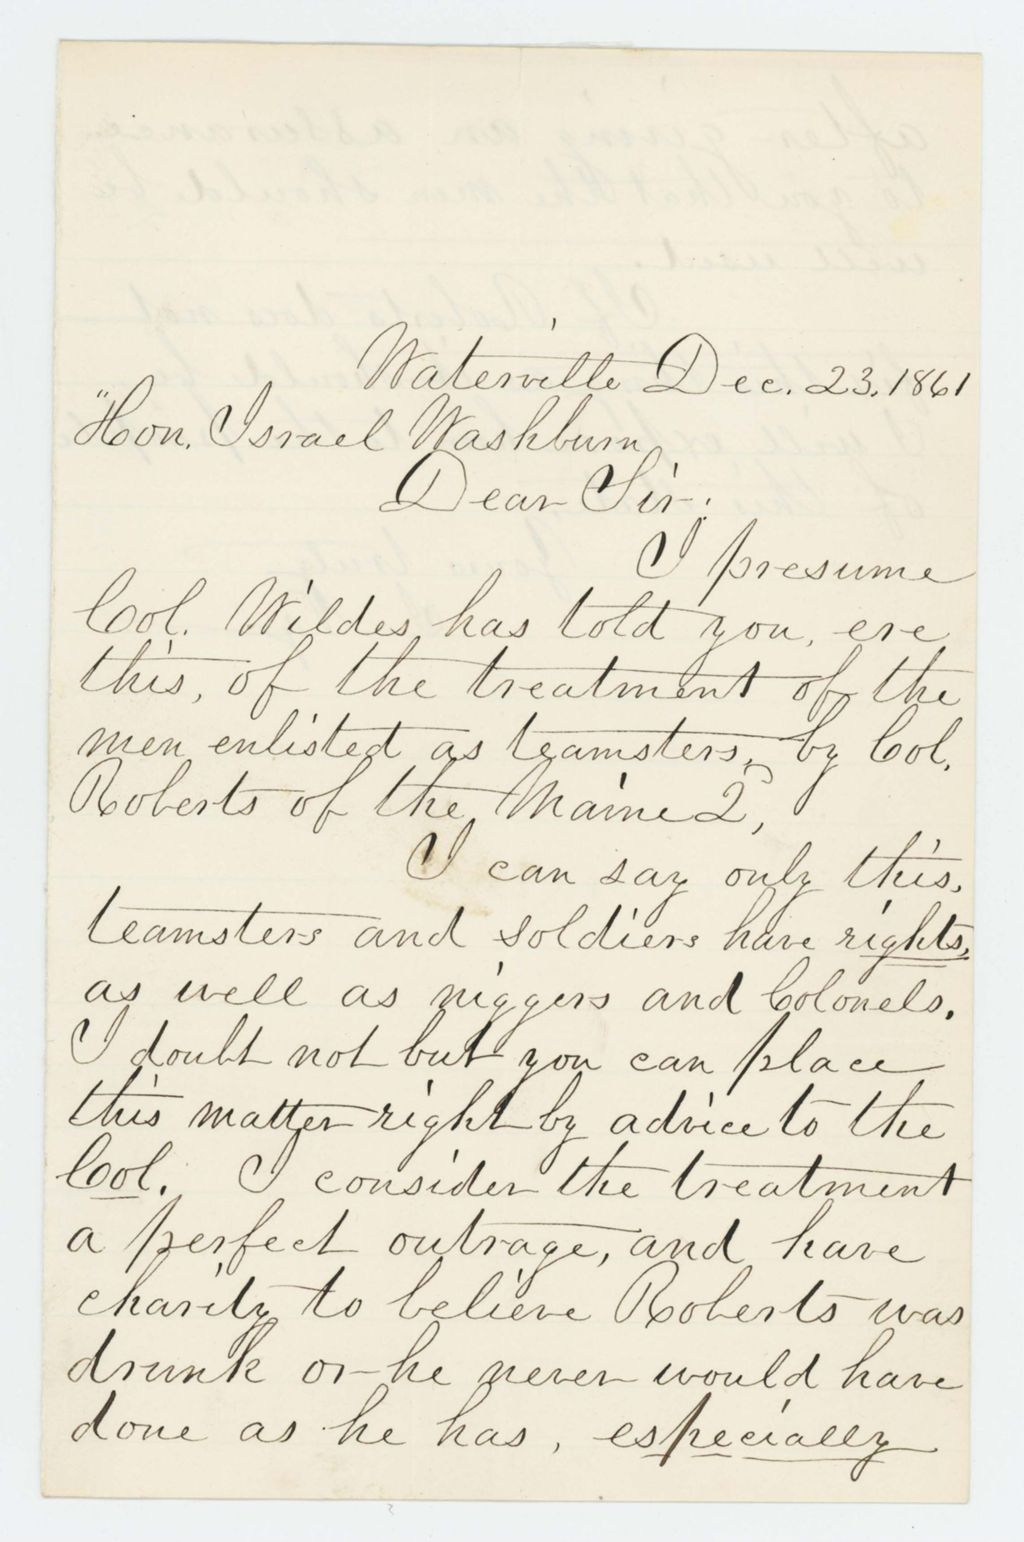 Waterville Dec. 23. 1861
"Hon. Israel Washburn
Dear Sir:
I presume
Col. Wildes has told you, ere
this, of the treatment of the
men enlisted as teamsters, by Col.
Roberts of the Maine 2,
I can say only this,
teamsters and soldiers have rights,
as well as niggers and Colonels.
I doubt not but you can place
this matter right by advice to the
Col. I consider the treatment
a perfect outrage, and have
charity to believe Roberts was
drunk or he never would have
done as he has, especially